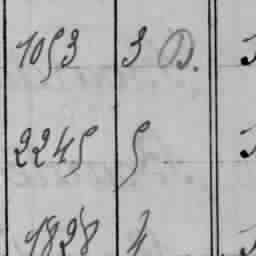 1053 3 D.
2245 5
1828 4